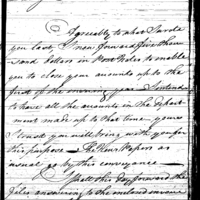 Agreeably to what I wrote
you last, I now forward five thou
sand dollars in Post Notes to enable
you to close your accounts up to the
first of the ensuing year. I intend
to have all the accounts in the Depart
ment made up to that time - yours
I trust you will bring with you for
this purpose - The News Papers as
usual go by this conveyance -
I have this day forward the